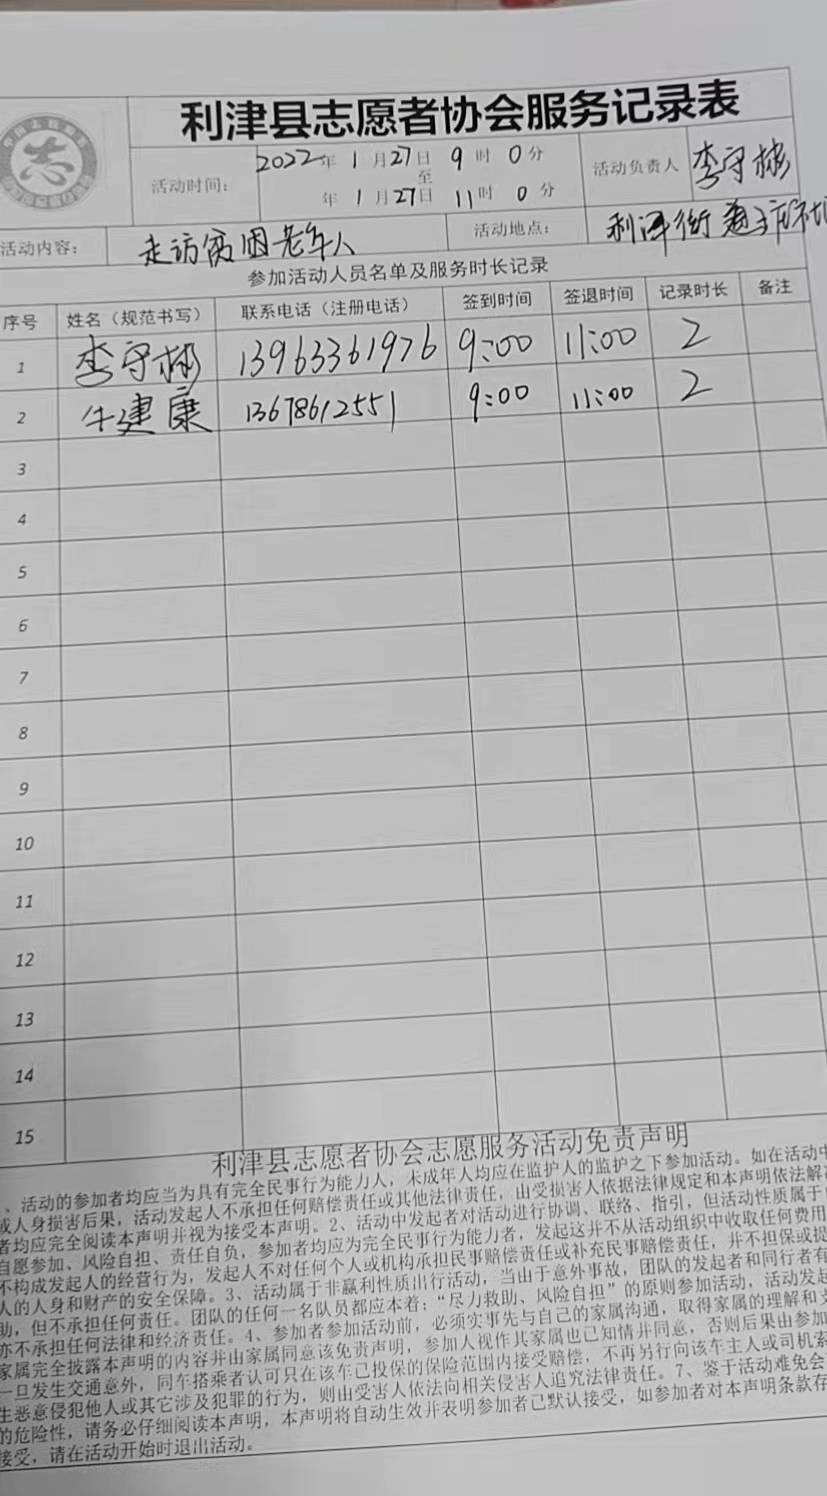 利津县志愿者协会服务记录表
活动时间：
2022年1月27日9时0分
至
年1月27日11时0分
活动负责人
李守彬
活动内容：
走访贫困老年人
活动地点：
利津街
参加活动人员名单及服务时长记录
序号 姓名（规范书写） 联系电话（注册电话） 签到时间 签退时间 记录时长 备注
1 李守彬 13963361976 9:00 11:00 2
2 牛建康 13678612551 9:00 11:00 2
3
4
5
6
7
8
9
10
11
12
13
14
15
利津县志愿者协会志愿服务活动免责声明
、活动的参加者均应当为具有完全民事行为能力人，未成年人均应在监护人的监护之下参加活动。如在活动中
或人身损害后果，活动发起人不承担任何赔偿责任或其他法律责任，由受损害人依据法律规定和本声明依法解
者均应完全阅读本声明并视为接受本声明。2、活动中发起者对活动进行协调、联络、指引，但活动性质属于
自愿参加、风险自担、责任自负，参加者均应为完全民事行为能力者，发起这并不从活动组织中收取任何费用
不构成发起人的经营行为，发起人不对任何个人或机构承担民事赔偿责任或补充民事赔偿责任，并不担保或提
人的人身和财产的安全保障。3、活动属于非赢利性质出行活动，当由于意外事故，团队的发起者和同行者有
助，但不承担任何责任。团队的任何一名队员都应本着：“尽力救助、风险自担”的原则参加活动，活动发起
亦不承担任何法律和经济责任。4、参加者参加活动前，必须实事先与自己的家属沟通，取得家属的理解和支
家属完全披露本声明的内容并由家属同意该免责声明，参加人视作其家属也已知情并同意，否则后果由参加
一旦发生交通意外，同车搭乘者认可只在该车已投保的保险范围内接受赔偿，不再另行向该车主人或司机索
生恶意侵犯他人或其它涉及犯罪的行为，则由受害人依法向相关侵害人追究法律责任。7、鉴于活动难免会
的危险性，请务必仔细阅读本声明，本声明将自动生效并表明参加者已默认接受，如参加者对本声明条款存
接受，请在活动开始时退出活动。